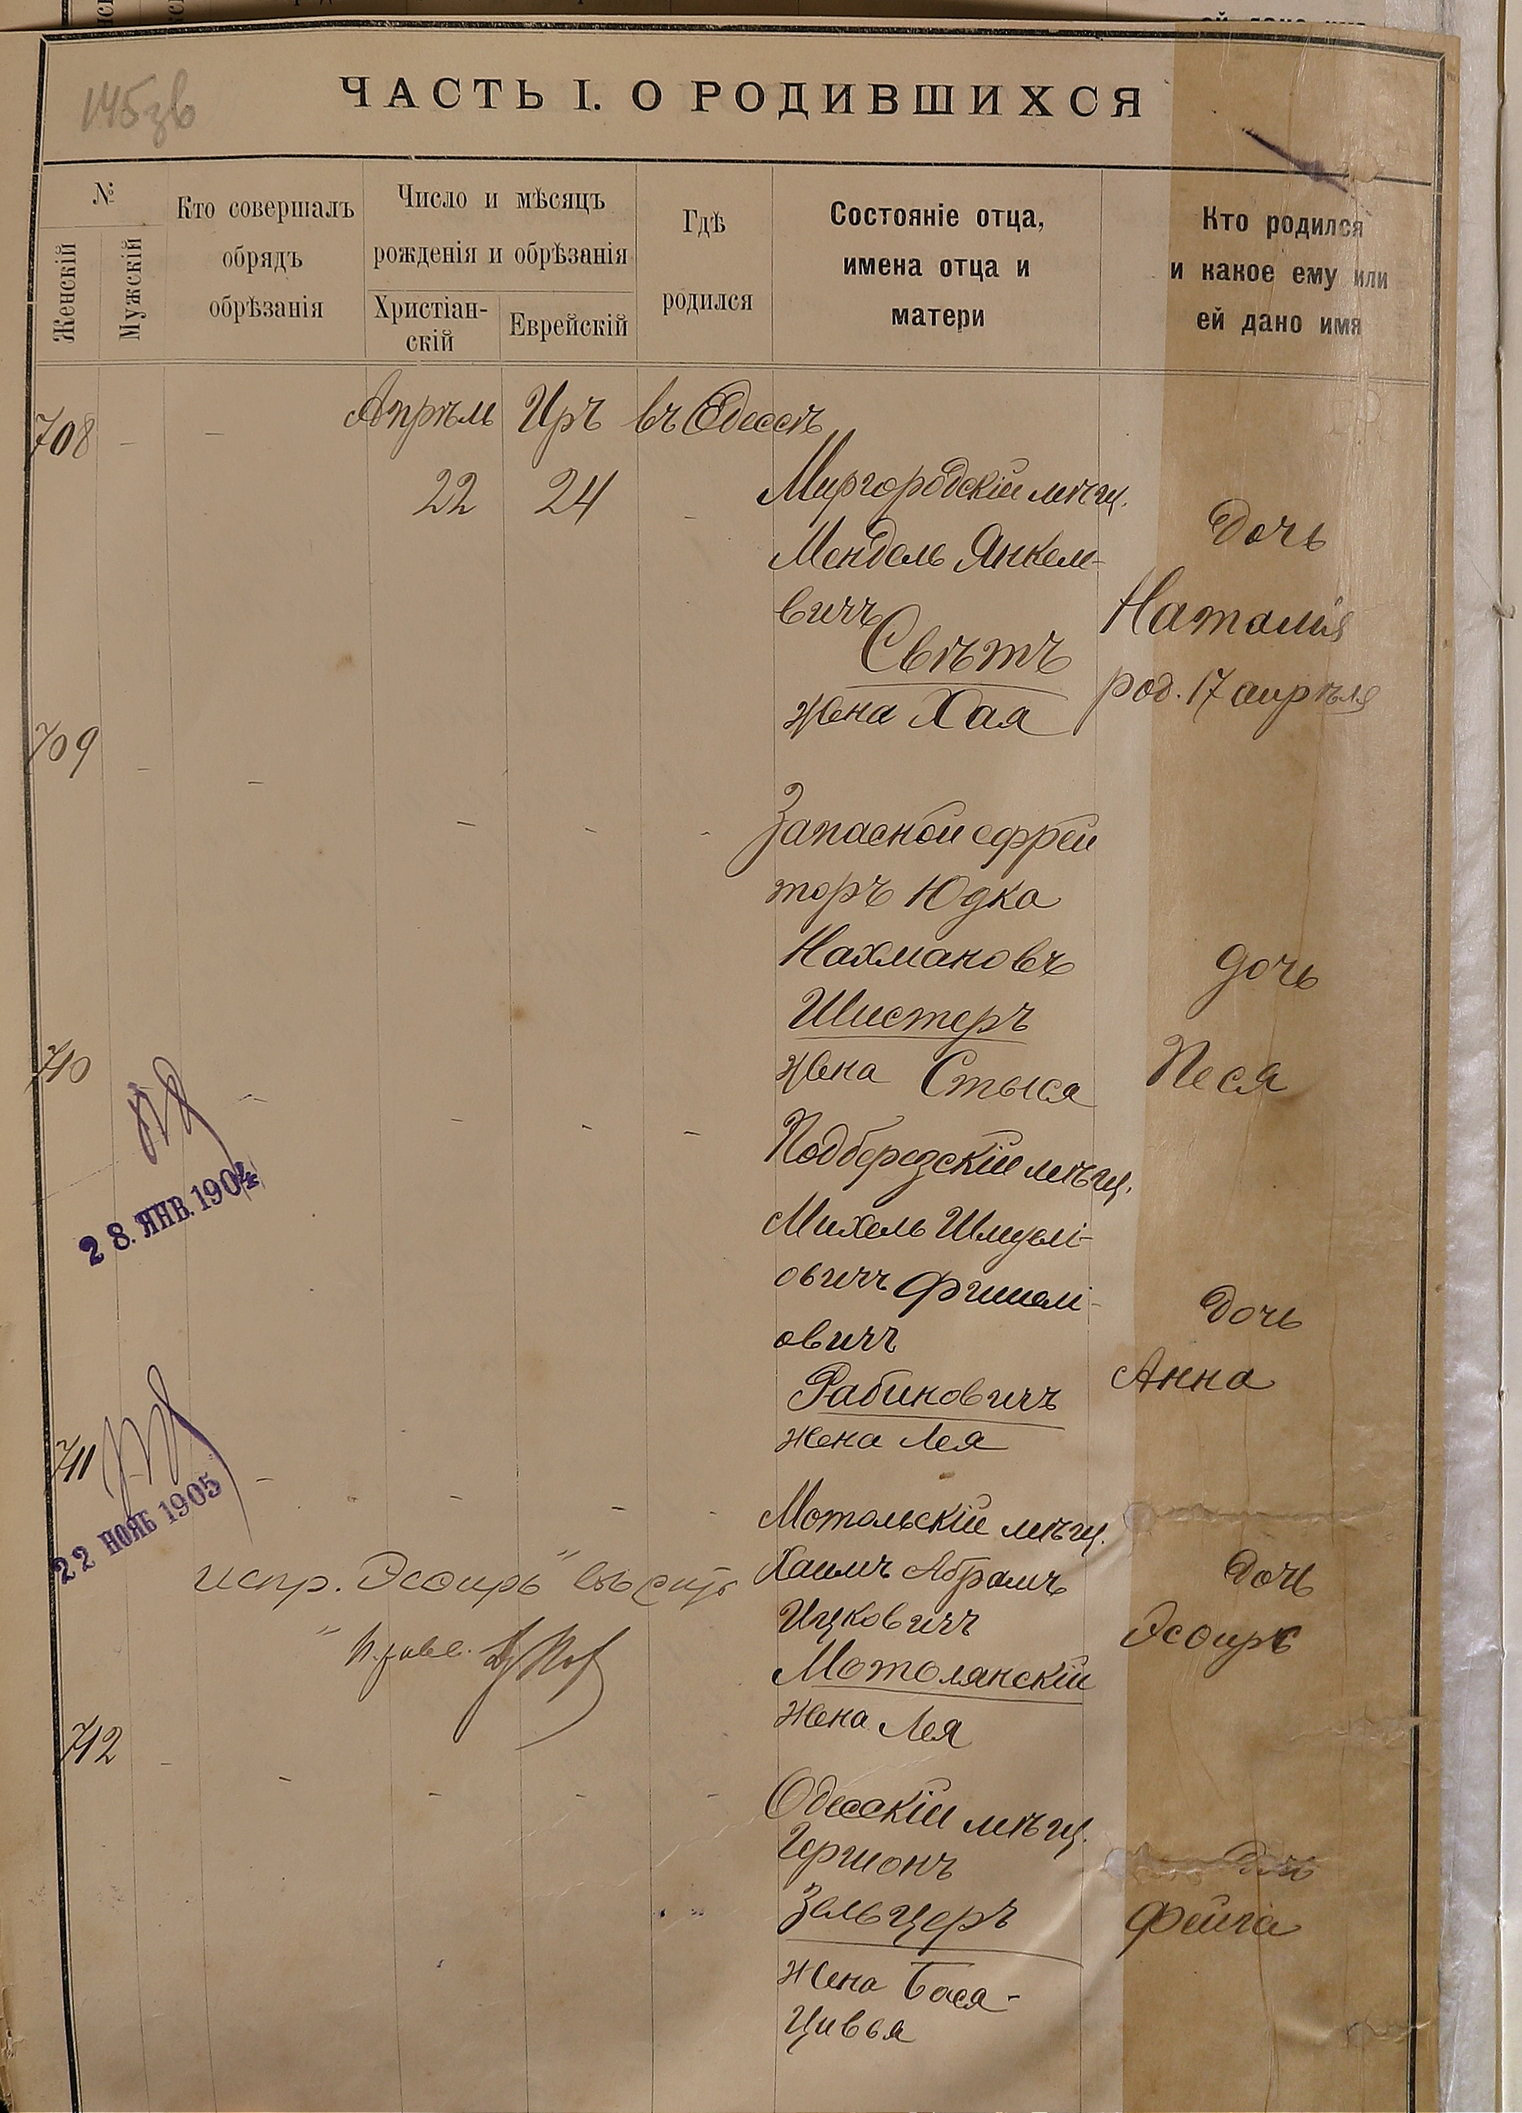 145 зв
ЧАСТЬ I. О РОДИВШИХСЯ
№
Женскій
Мужскій
Кто совершалъ
обрядъ
обрѣзанія
Число и мѣсяцъ
рожденія и обрѣзанія
Христіан-
скій
Еврейскій
Гдѣ
родился
Состояніе отца,
имена отца и
матери
Кто родился
и какое ему или
ей дано имя
708
Апрѣль Иръ въ Одессѣ
22 24
Миргородскій мѣщ.
Мендель Янкеле-
вичъ
Свѣтъ
жена Хая
дочь
Наталия
род. 17 апрѣля
709
Запасной ефрей
торъ Юдка
Нахмановъ
Шистеръ
жена Стыся
дочь
Песя
710
28. ЯНВ. 1904
Подберезскій мѣщ.
Михель Шмулі-
овичъ Фишелі-
овичъ
Рабиновичъ
жена Лея
дочь
Анна
711
22 НОЯБ 1905
испр. "Эсѳирь" вѣрить
Мотольскій мѣщ.
Хаимъ Абрамъ
Ицковичъ
Мотолянскій
жена Лея
дочь
Эсѳирь
712
Одесскій мѣщ.
Гершонъ
Зельцеръ
жена Бася-
Цивья
дочь
Фейга